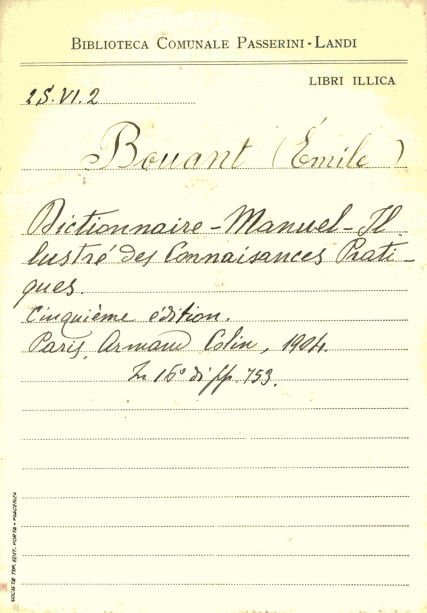 BIBLIOTECA COMUNALE PASSERINI-LANDI
LIBRI ILLICA
2S.VI.2
Bouant (Émile)
Dictionnaire-Manuel-Il-
lustré des Connaisances Prati-
ques.
Cinquième édition.
Paris, Armand Colin, 1904.
In 16º di pp. 753.
SOCIETÀ TIP. EDIT. PORTA - PIACENZA